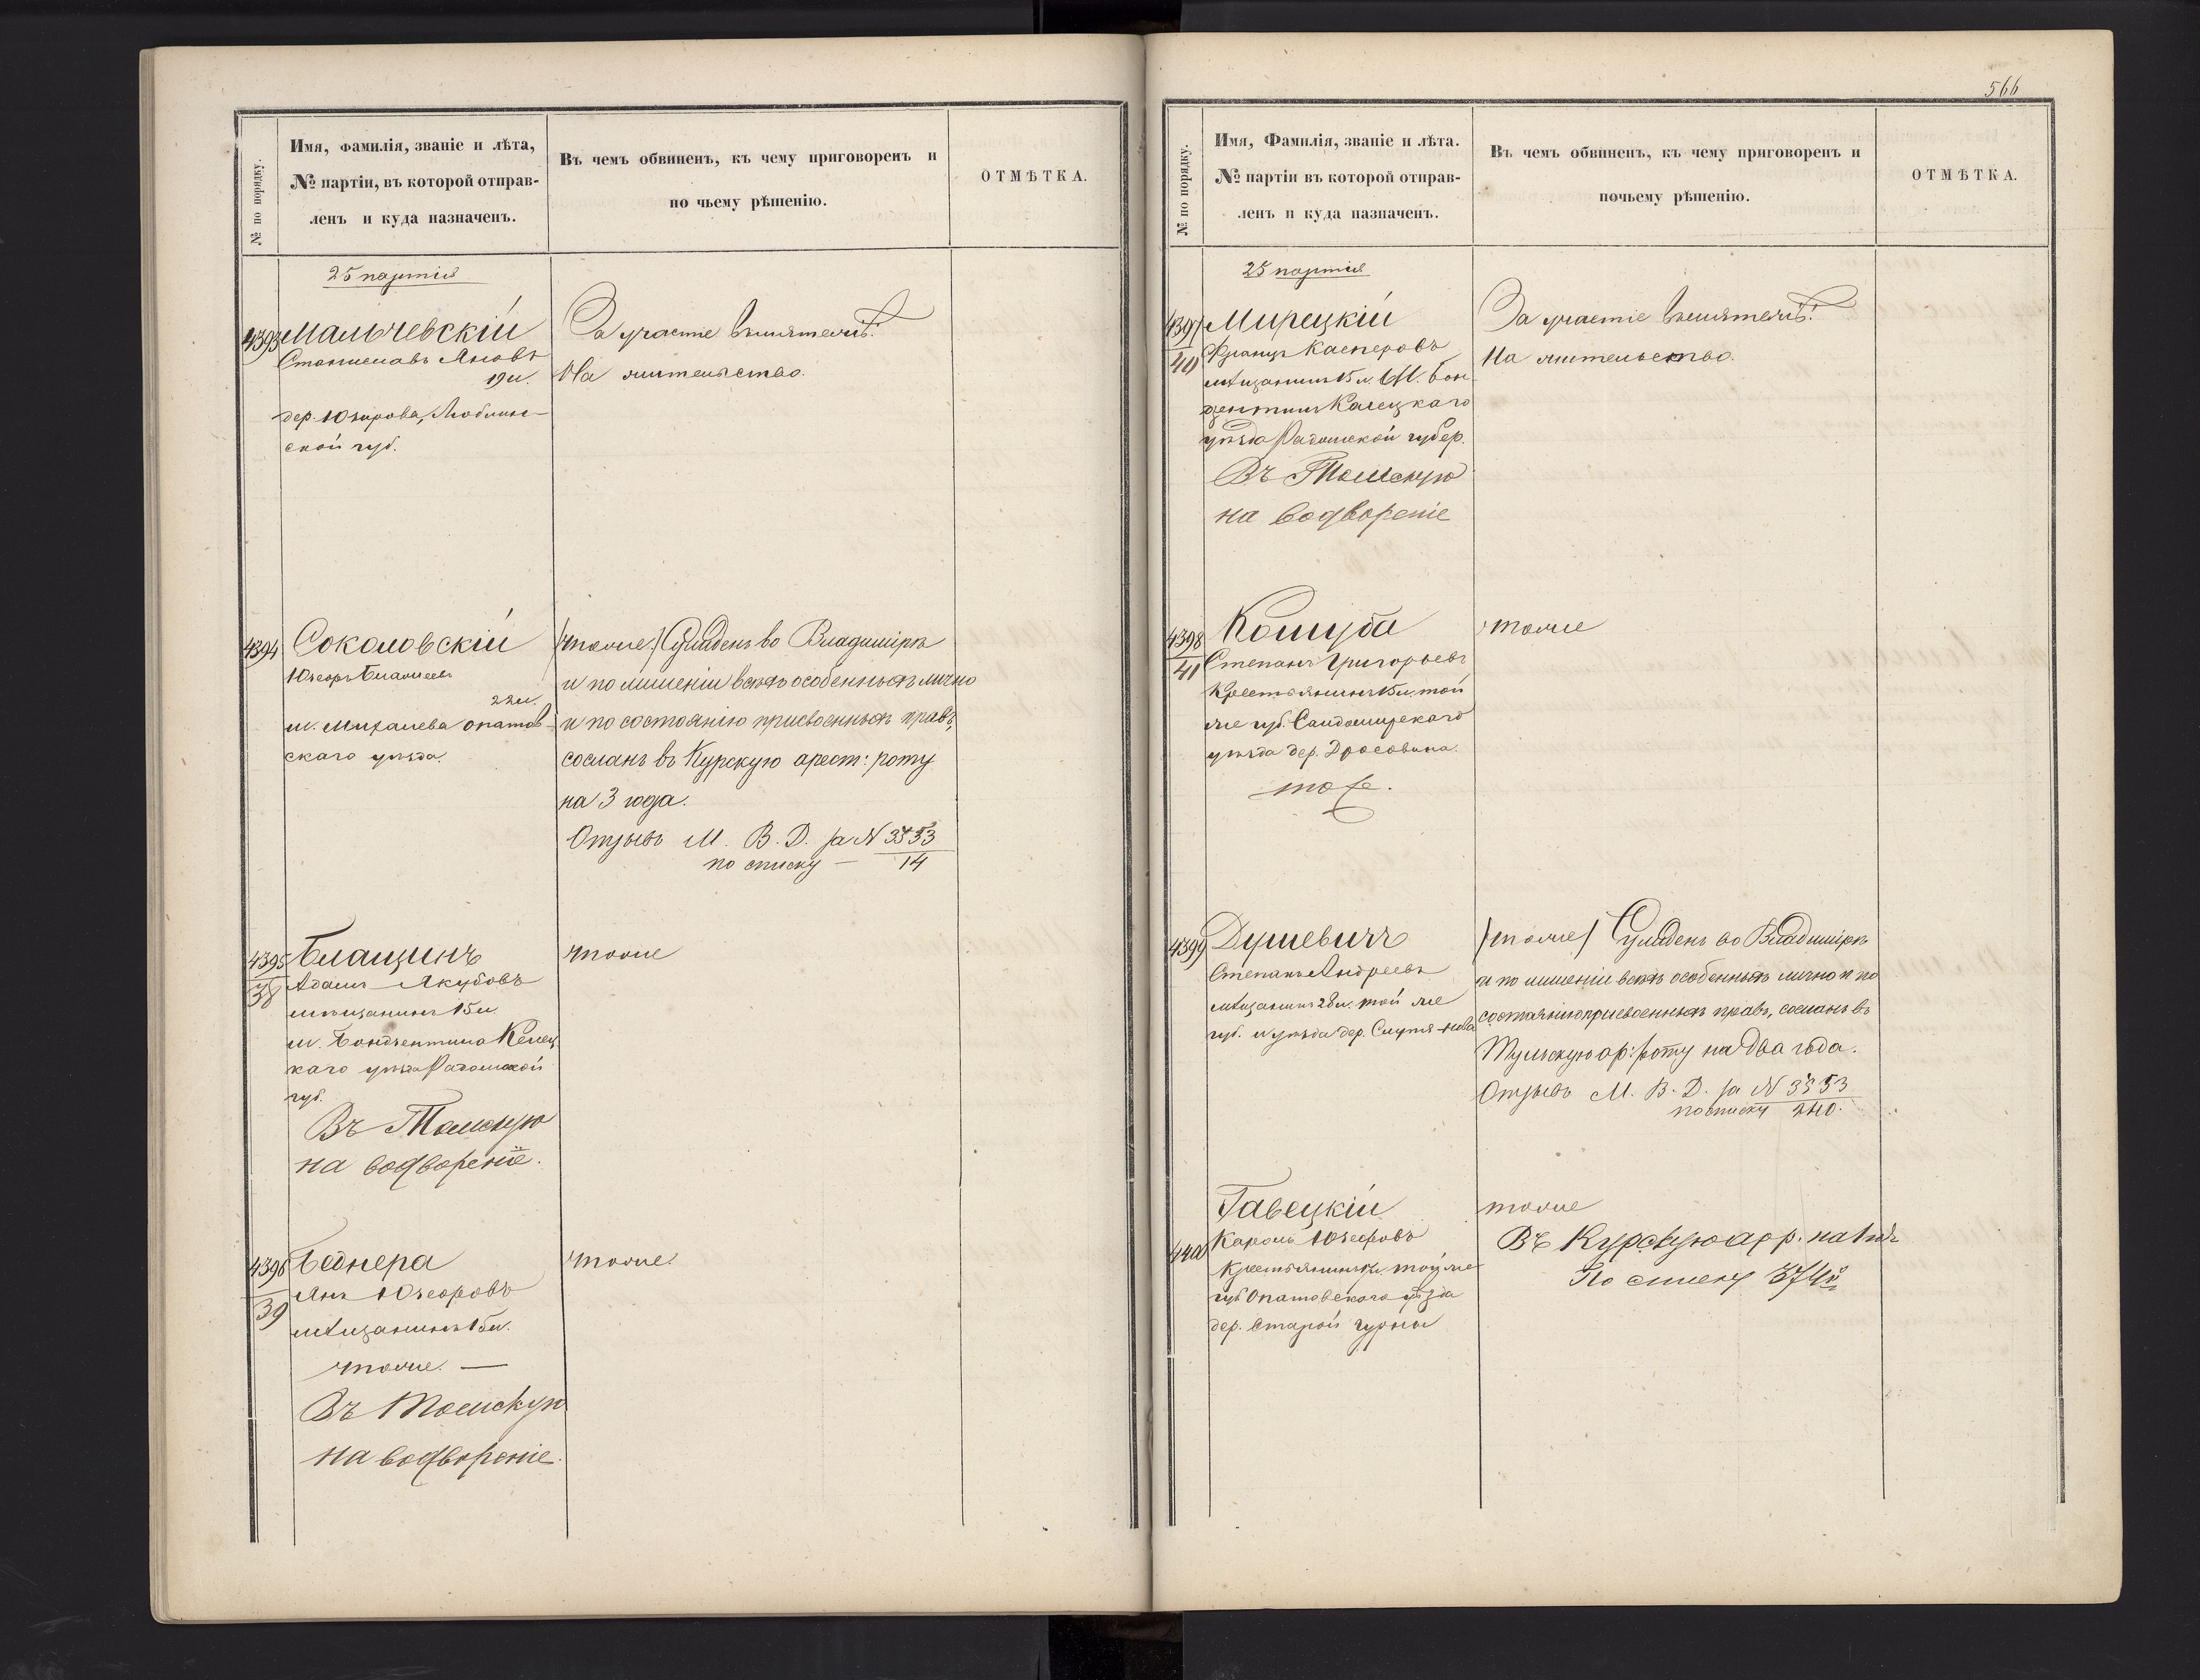 № по порядку.
Имя, фамилія, званіе и лѣта,
№ партіи, въ которой отправ-
ленъ и куда назначенъ.
Въ чемъ обвиненъ, къ чему приговоренъ и
по чьему рѣшенію.
ОТМѢТКА.
25 партія
4393 Мальчевскій
Станиславъ Яновъ
19 л.
дер. Юзефова, Люблин-
ской губ.
За участіе въ мятежѣ.
На жительство.
4394 Соколовскій
Юзефъ
22 л.
м. опатов-
скаго уѣзда.
(тоже) Сужденъ во Владимірѣ
и по лишеніи всѣхъ особенныхъ лично
и по состоянію присвоенныхъ правъ,
сосланъ въ Курскую арест: роту
на 3 года.
Отзывъ М. В. Д. за N 3353
по списку — 14
4395
38
Блащинъ
Адамъ Якубовъ
мѣщанинъ 15 л.
м. Бондзентина Келец
каго уѣзда Радомской
губ.
Въ Томскую
на водвореніе.
тоже
4396
39
Беднера
Янъ Юзефовъ
мѣщанинъ 15 л.
тоже. —
Въ Томскую
на водвореніе.
тоже.
566
№ по порядку.
Имя, Фамилія, званіе и лѣта.
№ партіи въ которой отправ-
ленъ и куда назначенъ.
Въ чемъ обвиненъ, къ чему приговоренъ и
почьему рѣшенію.
ОТМѢТКА.
25 партія
4397
40
Мирецкій
Францъ Касперовъ
мѣщанинъ 15 л. М. Бон-
зентина Калецкаго
уѣзда Радомской губер.
Въ Томскую
на водвореніе
За участіе въ мятежѣ.
На жительство.
4398
41
Кошуба
Степанъ Григорьевъ
Крестьянинъ 15 л. той
же губ. Сандомирскаго
уѣзда дер.
тоже.
тоже
4399 Душевичъ
Степанъ Андреевъ
мѣщанинъ 28 л. той же
губ. и уѣзда дер.
(тоже) Сужденъ во Владимірѣ
и по лишеніи всѣхъ особенныхъ лично и по
состоянію присвоенныхъ правъ, сосланъ въ
Тульскую ар: роту на два года.
Отзывъ М. В. Д. за N 3353
по списку 240.
4400 Гавецкій
Кароль Юзефовъ
Крестьянинъ той же
губ Опатовскаго уѣзда
дер. Старой Гурны
тоже
Въ Курскую ар р. на 1 г.
По списку